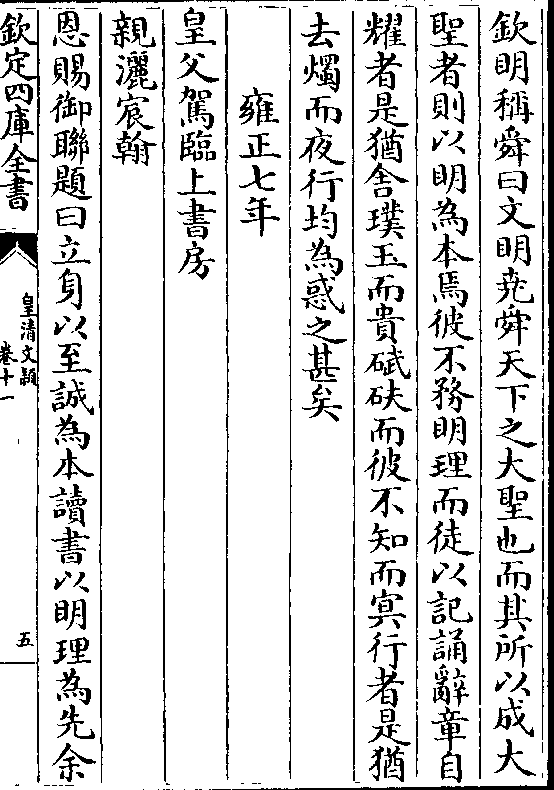 欽明稱舜曰文明堯舜天下之大聖也而其所以成大
聖者則以明為本焉彼不務明理而徒以記誦辭章自
耀者是猶舍璞玉而貴碔砆而彼不知而冥行者是猶
去燭而夜行均為惑之甚矣
雍正七年
皇父駕臨上書房
親灑宸翰
恩賜御聯題曰立身以至誠為本讀書以明理為先余
欽定四庫全書
皇清文穎
卷十一
五